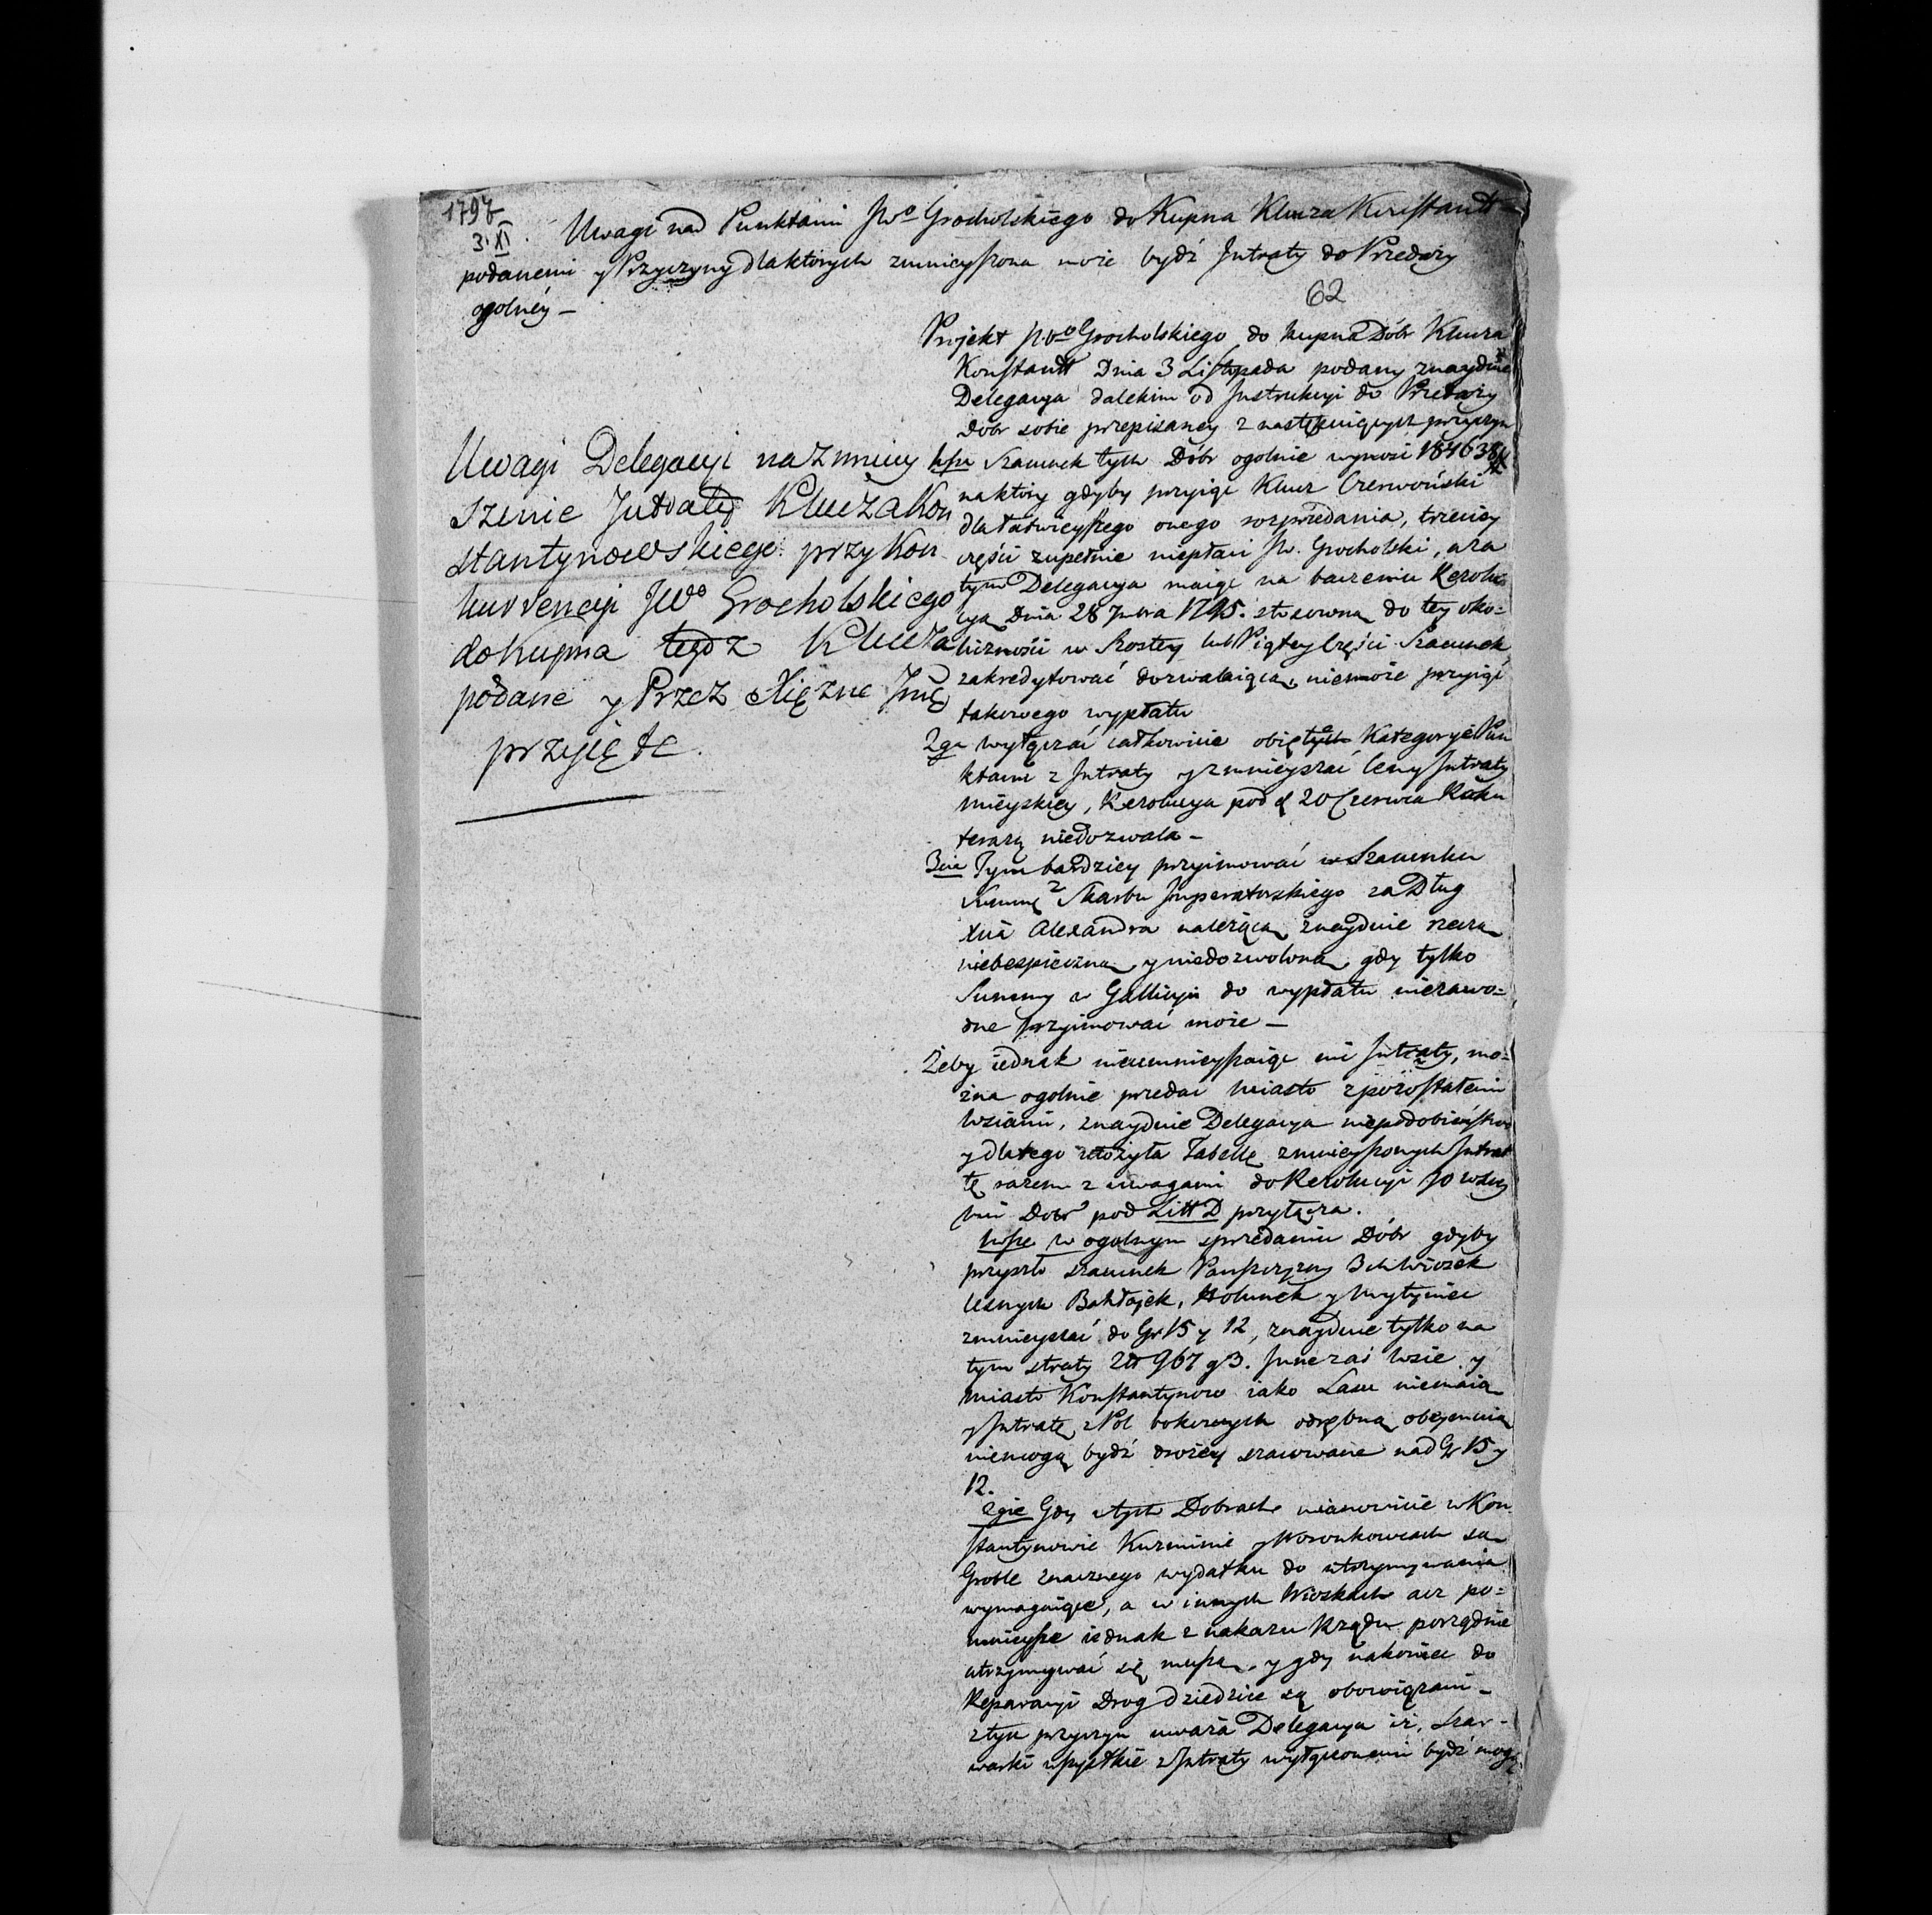 1797
3. XI.
Uwagi nad Punktami JWo Grocholskiego do Kupna Klucza Konstantt
podanemi y Przyczyny dla ktorych zmnieyszona może bydź Intraty do Przedaży
ogolnéy –
62
Uwagi Delegacyi na zmniey
szenie Intraty Klucza Kon
stantynowskiego przy Kon
kurrencyi JWo Grocholskiego
do Kupna tegoż Klucza
podane y Przez Xiężne Jmę
przyięte.
Projekt JWo Grocholskiego do kupna Dóbr Klucza
Konstantt Dnia 3 Listopada podany znayduie
Delegacya dalekim od Instrukcyi do Przedaży
Dóbr sobie przepisaney z następuiących przyczyn
1sze Szacunek tych Dóbr ogolnie wynosi 1846388
na ktory gdyby przyiąć Klucz Czerwoński
dla łatwieyszego onego rozprzedania, trzeciey
części zupełnie niepłaci JW. Grocholski, a za
tym Delegacya maiąc na baczeniu Rezolu
cyą Dnia 28 7bra 1795. stosowną do tey oko=
liczności w Szostey lub Piątey Części Szacunek
zakredytować dozwalaiącą, niemoże przyiąć
takowego wypłatu
2gie Wyłączać całkowicie obięte Kategorye Pun
ktami z Intraty y zmnieyszać Ceny Intraty
mieyskiey, Rezolucya pod d 20 Czerwca Roku
teraz niedozwala –
3cie Tym bardziey przyimować w Szacunku
Summę z Skarbu Imperatorskiego za Dług
Xcia Alexandra należącą znayduie rzeczą
niebespieczną y niedozwoloną gdy tylko
Summy w Gallicyi do wypłatu niezawo=
dne przyimować może –
Żeby iednak nieumnieyszaiąc nic Intraty, mo=
żna ogolnie przedać Miasto z pozostałemi
Wsiami, znayduie Delegacya niepodobieństwo
y dlatego ułożyła Tabellę zmnieyszonych Intrat
tę razem z uwagami do Rezolucyi JO
Dobr pod Litt D przyłącza.
1sze w ogolnym sprzedaniu Dóbr gdyby
przyszło szacunek Pańszczyzny 3ch Wiosek
leśnych Bahłajek, Hołunek y
zmnieyszać do Gr 15 y 12, znayduie tylko na
tym straty Złt 967 g 3. Inne zaś Wsie y
Miasto Konstantynow iako Lasu niemaią
y Intratę z Pol odrębną obeymuią
niemogą bydź drożey szacowane nad Gr 15 y
12.
2gie Gdy w tych Dobrach mianowicie w Kon
stantynowie Kuzminie y Woronkowcach są
Groble znacznego wydatku do utrzymywania
wymagaiące, a w innych Wioskach acz po=
mnieysze iednak z nakazu Rządu porządnie
utrzymywać się muszą, y gdy nakoniec do
Reparacyi Drog Dziedzice są obowiązani –
z tych przyczyn uważa Delegacya iż, szar-
warki wszystkie z Intraty wyłączonemi bydź mogą